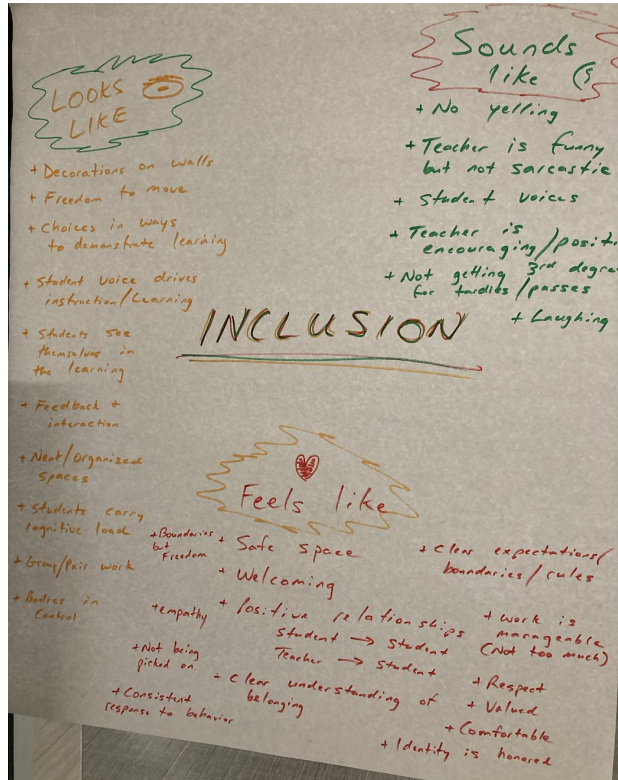 LOOKS
LIKE
+ Decorations on walls
+ Freedom to move
+ Choices in ways
to demonstrate learning
+ Student voice drives
instruction/Learning
+ Students see
themselves in
the learning
+ Feedback +
interaction
+ Neat/Organized
spaces
+ Students carry
cognitive load
+ Group/Pair work
+ Bodies in
Control
Sounds
like
+ No yelling
+ Teacher is funny
but not sarcastic
+ Student voices
+ Teacher is
encouraging/posit
+ Not getting 3rd degre
for tardies/passes
+ Laughing
INCLUSION
Feels like
+ Boundaries
but
Freedom
+ empathy
+ Not being
picked on
+ Consistent
response to behavior
+ Safe space
+ Welcoming
+ Positive relationships
Student → Student
Teacher → Student
- Clear understanding of
belonging
+ Clear expectations/
boundaries/rules
+ work is
manageable
(Not too much)
+ Respect
+ Valued
+ Comfortable
+ Identity is honored